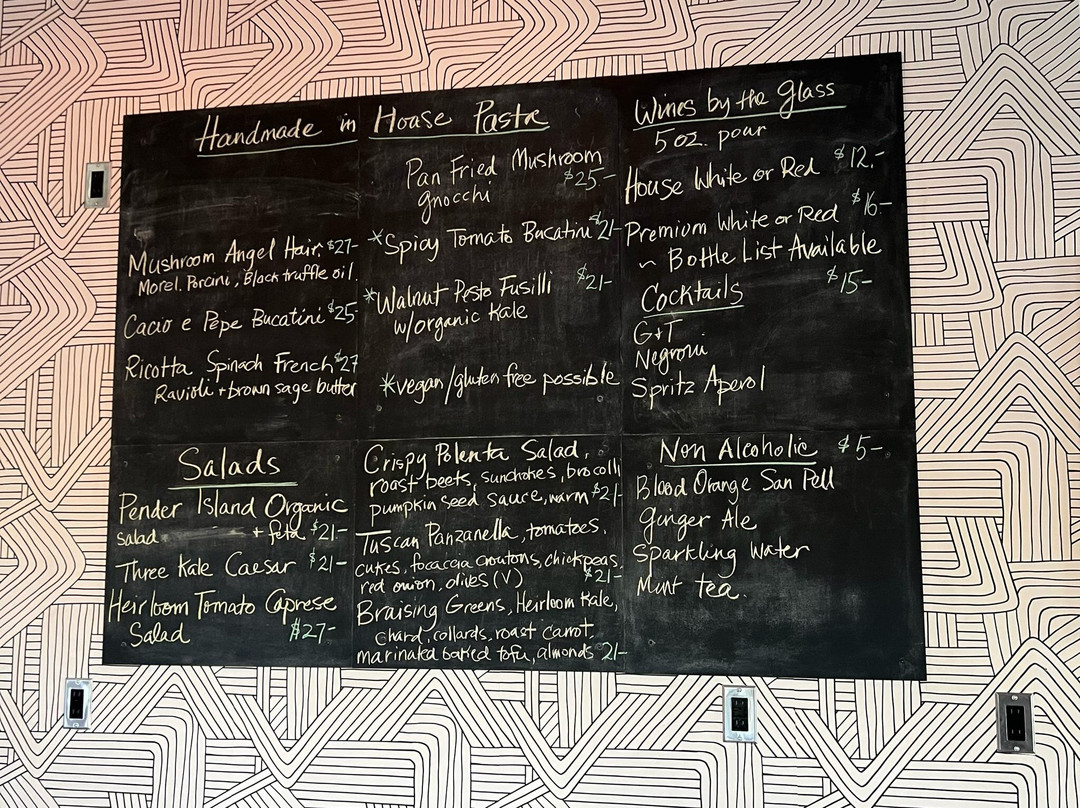 Handmade in House Pasta
Mushroom Angel Hair. $27-
Morel. Porcini, Black truffle oil.
Cacio e Pepe Bucatini $25
Ricotta Spinach French $27
Ravioli + brown sage butter
Pan Fried Mushroom
gnocchi $25-
*Spicy Tomato Bucatini $21-
*Walnut Pesto Fusilli $21-
w/organic Kale
*vegan/gluten free possible
Wines by the Glass
5 oz. pour
House White or Red $12.-
Premium White or Red $16.-
~ Bottle List Available
Cocktails $15-
G+T
Negroni
Spritz Aperol
Salads
Pender Island Organic
Salad + feta $21-
Three Kale Caesar $21-
Heirloom Tomato Caprese
Salad $27-
Crispy Polenta Salad,
roast beets, sunchokes, brocolli
pumpkin seed sauce, warm $21-
Tuscan Panzanella, tomatoes,
cukes, focaccia croutons, chickpeas,
red onion, olives (V) $21-
Braising Greens, Heirloom Kale,
chard, collards, roast carrot,
marinated baked tofu, almonds 21-
Non Alcoholic $5-
Blood Orange San Pell
Ginger Ale
Sparkling Water
Mint tea.